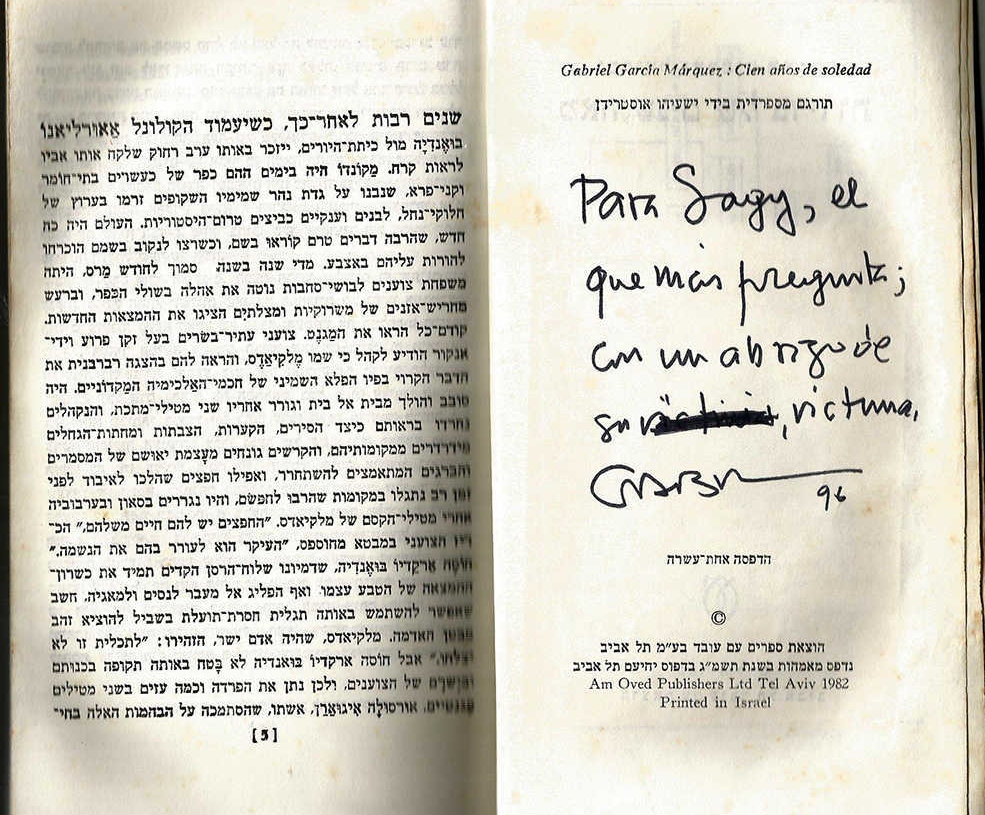 Gabriel García Márquez : Cien años de soledad
תורגם מספרדית בידי ישעיהו אוסטרידן
Para Sagy, el
que más pregunta;
con un abrazo de
su, víctima,
96
הדפסה אחת־עשרה
©
הוצאת ספרים עם עובד בע״מ תל אביב
נדפס מאמהות בשנת תשמ״ג בדפוס יחיעם תל אביב
Am Oved Publishers Ltd Tel Aviv 1982
Printed in Israel
שנים רבות לאחר־כך, כשיעמוד הקולונל אַאוּרליאנוֹ
בוּאֶנדִיָה מול כיתת־היורים, ייזכר באותו ערב רחוק שלקח אותו אביו
לראות קרח. מַקוֹנדוֹ היה בימים ההם כפר של כעשרים בתי־חומר
וקני־פרא, שנבנו על גדת נהר שמימיו השקופים זרמו בערוץ של
חלוקי־נחל, לבנים וענקיים כביצים טרום־היסטוריות. העולם היה כה
חדש, שהרבה דברים טרם קוֹראוּ בשם, וכשרצו לנקוב בשמם הוכרחו
להורות עליהם באצבע. מדי שנה בשנה, סמוך לחודש מַרס, היתה
משפחת צוענים לבושי־סחבות נוטה את אהלה בשולי הכפר, וברעש
מחריש־אזנים של משרוקיות ומצלתיִם הציגו את ההמצאות החדשות.
קודם־כל הראו את המַגנֶט. צועני עתיר־בשׂרים בעל זקן פרוע וידי־
אנקור הודיע לקהל כי שמו מֶלקִיאַדֶס, והראה להם בהצגה רברבנית את
הדבר הקרוי בפיו הפלא השמיני של חכמי־האַלכימיה המַקדוניים. היה
סובב והולך מבית אל בית וגורר אחריו שני מטילי־מתכת, והנקהלים
נחרדו בראותם כיצד הסירים, הקערות, הצבתות ומחתות־הגחלים
מידרדרים ממקומותיהם, והקרשים גונחים מעָצמת יאוּשם של המסמרים
והברגים המתאמצים להשתחרר, ואפילו חפצים שהלכו לאיבוד לפני
זמן רב נתגלו במקומות שהרבוּ לחפשׂם, והיו נגררים בסאון ובערבוביה
אחרי מטילי־הקסם של מלקיאדס. ״החפצים יש להם חיים משלהם,״ הכ־
ריז הצועני במבטא מחוספס, ״העיקר הוא לעורר בהם את הנשמה.״
חוֹסֶה אַרקַדיוֹ בּוּאֶנדִיָה, שדמיונו שלוח־הרסן הקדים תמיד את כשרון־
ההמצאה של הטבע עצמו, ואף הפליג אל מעבר לנסים ולמאגיה, חשב
שאפשר להשתמש באותה תגלית חסרת־תועלת בשביל להוציא זהב
מבטן האדמה. מלקיאדס, שהיה אדם ישר, הזהירו: ״לתכלית זו לא
יצלחו.״ אבל חוסה ארקדיו בואנדיה לא בָּטח באותה תקופה בכנותם
וביָשרם של הצוענים, ולכן נתן את הפרדה וכמה עזים בשני מטילים
אורסולָה אִיגוּאַרָן, אשתו, שהסתמכה על הבהמות האלה בחי־
[5]